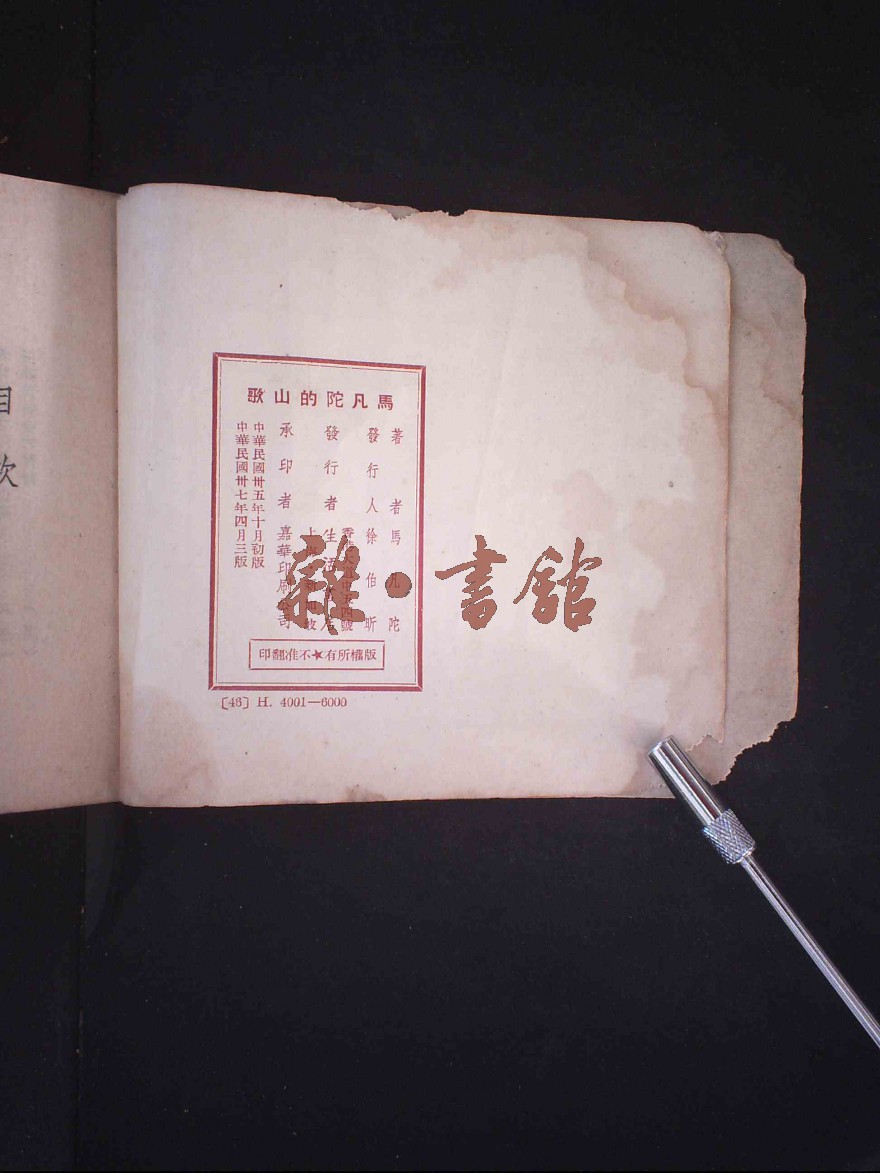 馬凡陀的山歌
著者 馬凡陀
發行人 徐伯昕
發行者 生活
承印者 嘉華印刷公司
中華民國卅五年十月初版
中華民國卅七年四月三版
版權所有★不准翻印
[46] H. 4001—6000
雜·書館